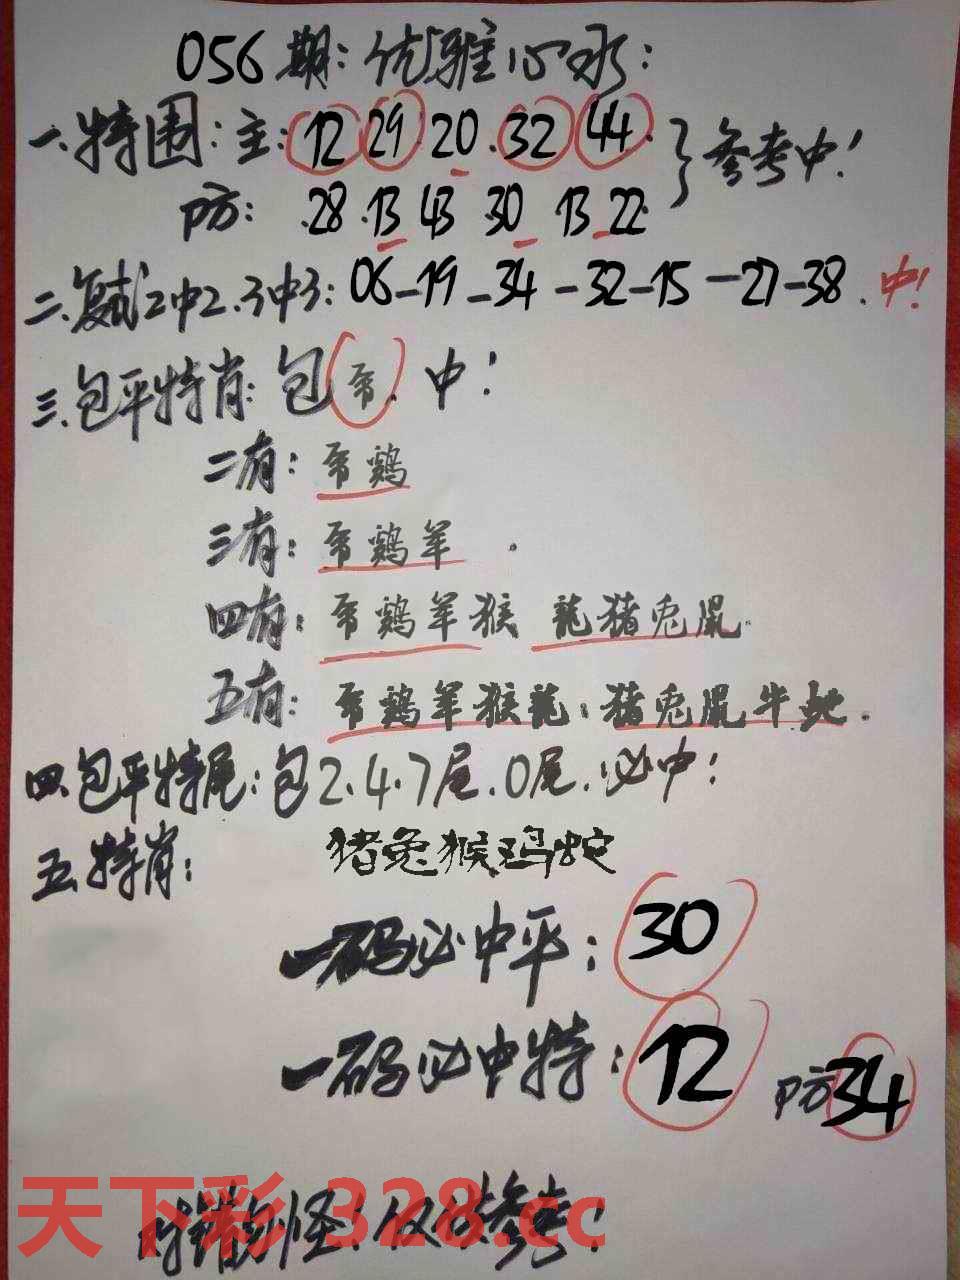 056期:优雅心水:
一.特围:主:12 29 20.32 44. 参考中!
防: .28 .13 43 30 13 22.
二.复式2中2.3中3:06-19-34-32-15-27-38.中!
三.包平特肖:包帝.中!
二有:帝鸡
三有:帝鸡羊.
四有:帝鸡羊猴 龍猪兎鼠.
五有:帝鸡羊猴龍:猪兎鼠牛她.
四.包平特尾:包2.4.7尾.0尾.必中!
五.特肖: 猪兔猴鸡蛇
一码必中平:30
一码必中特:12 防34
对错勿怪!仅供参考!
天下彩 328.cc